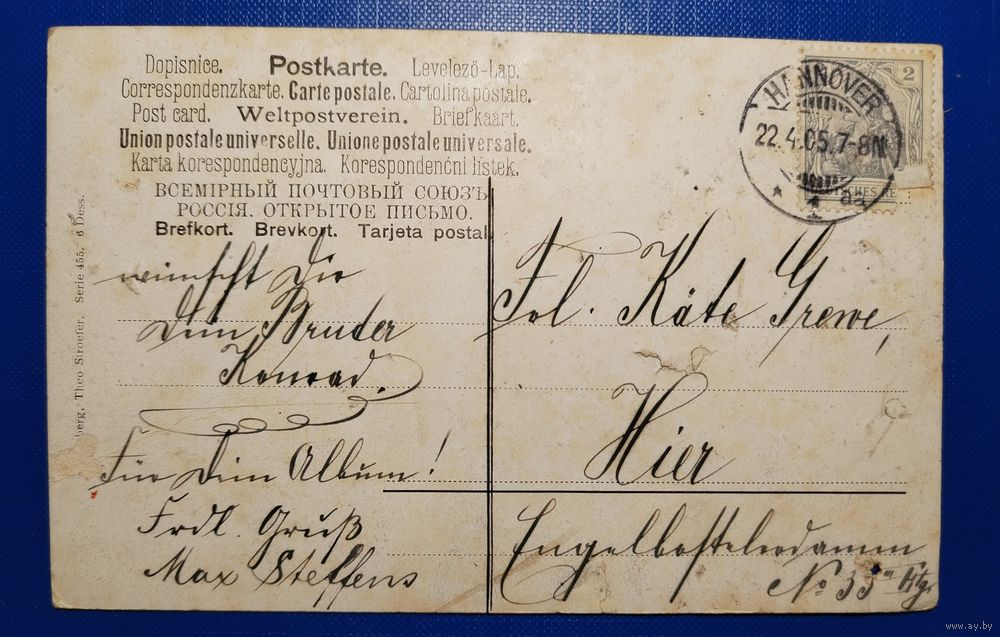 Dopisnice. Postkarte. Levelező-Lap.
Correspondenzkarte. Carte postale. Cartolina postale.
Post card. Weltpostverein. Briefkaart.
Union postale universelle. Unione postale universale.
Karta korespondencyjna. Korespondenční lístek.
ВСЕМІРНЫЙ ПОЧТОВЫЙ СОЮЗЪ
РОССІЯ. ОТКРЫТОЕ ПИСЬМО.
Brefkort. Brevkort. Tarjeta postal.
wünscht Dir
Dein Bruder
Konrad.
Für Dein Album!
Frdl. Gruß
Max Steffens
berg, Theo Stroefer, Serie 455. 6 Dess.
2
HANNOVER
22.4.05.7-8N.
* 1 aa
Frl. Käte Grewe,
Hier
Engelbostelerdamm
No 33 Htgs
www.ay.by